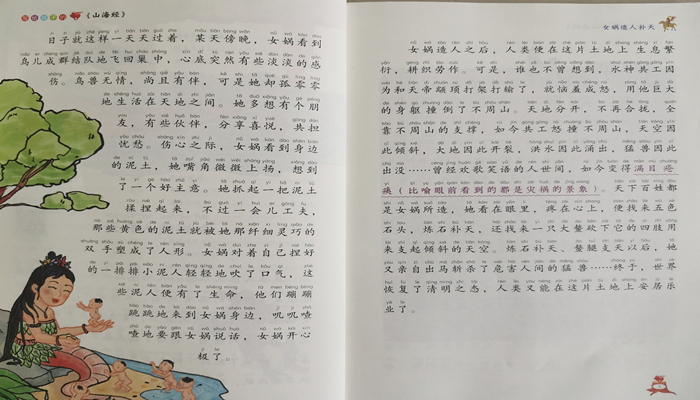 写给孩子的《山海经》
日子就这样一天天过着，某天傍晚，女娲看到
鸟儿成群结队地飞回巢中，心底突然有些淡淡的感
伤。鸟兽无情，尚且有伴，可是她却孤零零
地生活在天地之间。她多想有个朋
友，有些伙伴，分享喜悦，共担
忧愁。伤心之际，女娲看到身边
的泥土，她嘴角微微上扬，想到
了一个好主意。她抓起一把泥土
揉捏起来，不过一会儿工夫，
那些黄色的泥土就被她那纤细灵巧的
双手塑成了人形。女娲对着自己捏好
的一排排小泥人轻轻地吹了口气，这
些泥人便有了生命，他们蹦蹦
跳跳地来到女娲身边，叽叽喳
喳地要跟女娲说话，女娲开心
极了。
女娲造人补天
女娲造人之后，人类便在这片土地上生息繁
衍，耕织劳作。可是，谁也不曾想到，水神共工因
为和天帝颛顼打架打输了，就恼羞成怒，用他巨大
的身躯撞倒了不周山。天地分开，不再合拢，全
靠不周山的支撑，如今共工怒撞不周山，天空因
此倾斜，大地因此开裂，洪水因此涌出，猛兽因此
出没……曾经欢歌笑语的人世间，如今变得满目疮
痍（比喻眼前看到的都是灾祸的景象）。天下百姓都
是女娲所造，她看在眼里，疼在心上，便找来五色
石头，炼石补天，还找来一只大鳌砍下它的四肢用
来支起倾斜的天空。炼石补天、鳌腿支天以后，她
又亲自出马斩杀了危害人间的猛兽……终于，世界
恢复了清明之态，人类又能在这片土地上安居乐
业了。